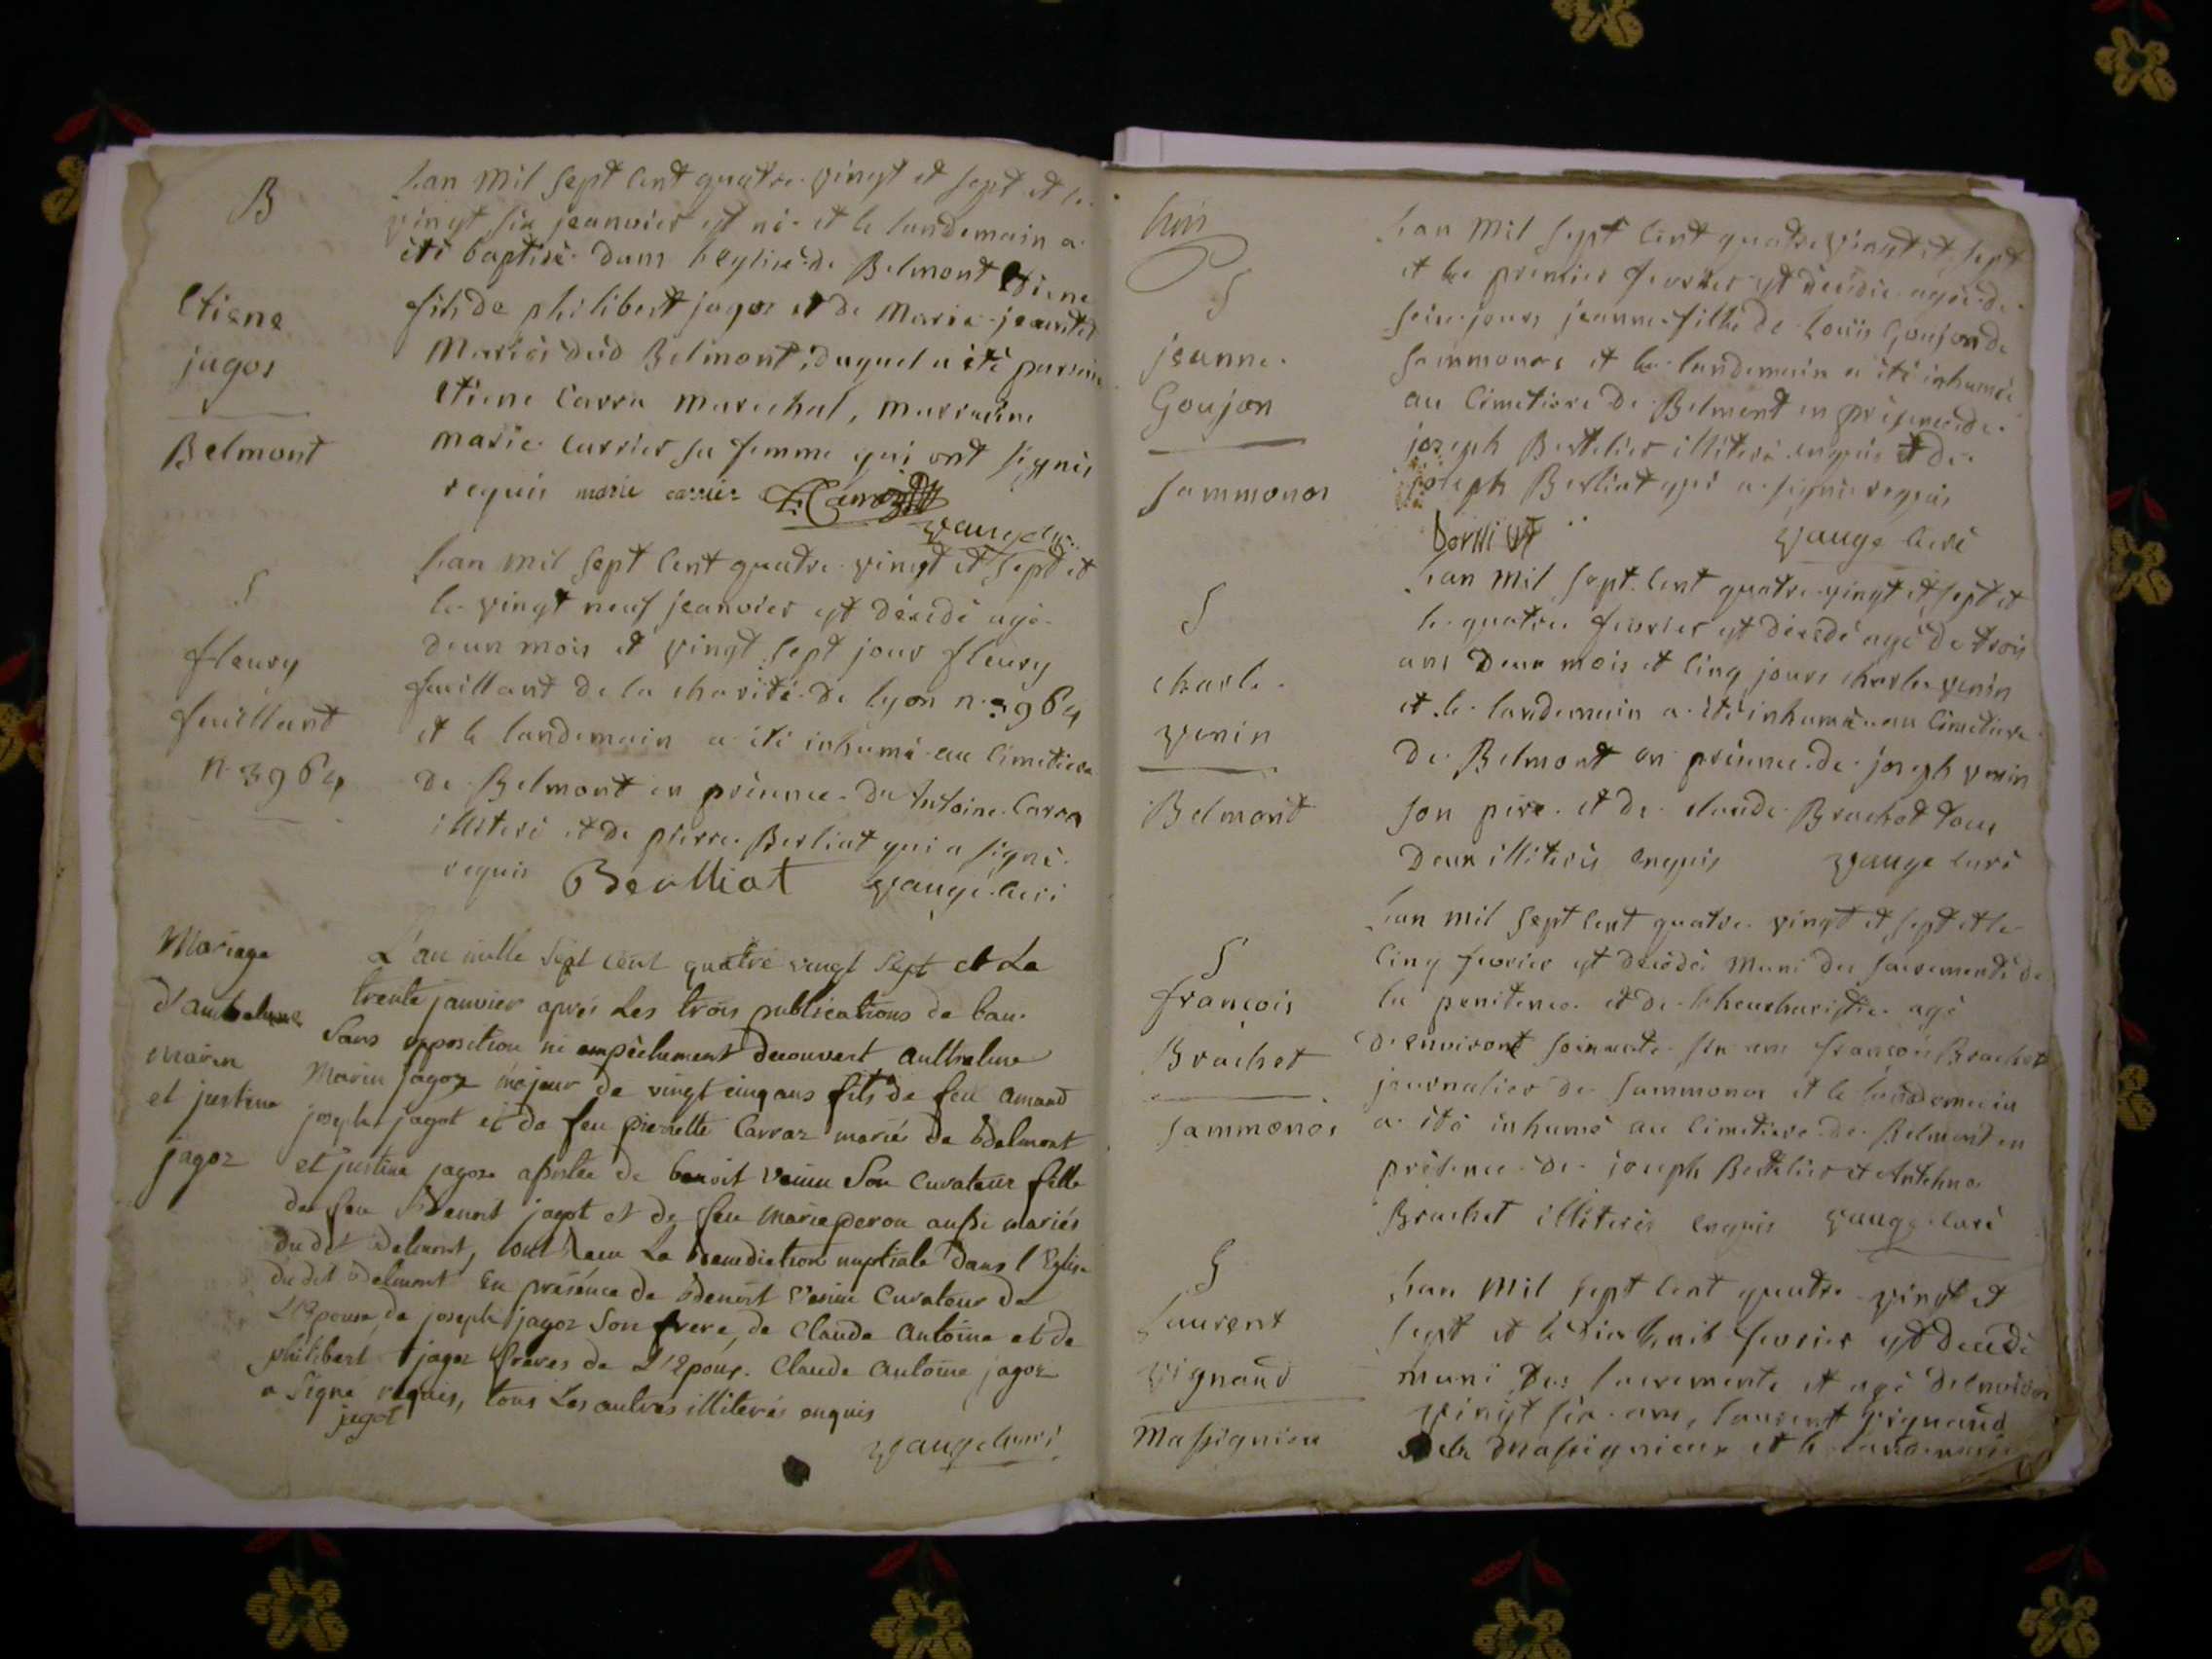 B
Lan mil sept cent quatre vingt et sept et le
vingt six jeanvier est né et le landemain a
été baptisé dans leglise de Belmont Etiene
fils de philibert jagoz et de Marie jeantet
Mariés dud Belmont, duquel a été parrain
Etiene Carra Marechal, marraine
marie carrier sa femme qui ont signés
requis marie carrier E. Carraz
vauge curé
Etiene
jagos
Belmont
Lan mil sept cent quatre vingt et sept et
le vingt neuf jeanvier est décédé agé
deun mois et vingt sept jour fleury
feuillant de la charité de lyon n. 3964
et le landemain a été inhumé au cimetiere
de Belmont en présence de Antoine Carra
illiteré et de pierre Berliat qui a signé
requis Berlliat vauge curé
S
fleury
feuillant
n. 3964
Mariage
d'anthelme
marin
et justine
jagoz
L'an mille sept cent quatre vingt sept et Le
trente janvier après Les trois publications de ban
Sans opposition ni empêchement découvert anthelme
Marin jagoz majeur de vingt cinq ans fils de feu amand
joseph jagot et de feu pierrette Carraz mariés de Belmont
et justine jagoz assistée de benoit venin Son Curateur fille
de feu Benoit jagot et de feu marie peron aussi mariés
dudit Belmont, ont Recu La Benediction nuptiale dans l'Eglise
dudit Belmont En présence de Benoit venin Curateur de
L'Epouse, de joseph jagoz Son frere, de Claude antoine et de
philibert jagoz freres de L'Epoux. Claude antoine jagoz
a Signé requis, tous Les autres illiterés enquis
jagot
vauge curé
huit
S
jeanne
Goujon
Sammonos
Lan mil sept cent quatre vingt et sept
et le premier fevrier est décédée agée de
seize jours jeanne fille de Louïs Goujon de
Sammonos et le landemain a été inhumée
au Cimetiere de Belmont en présence de
joseph Bertelier illiteré enquis et de
joseph Berliat qui a signé requis
vauge curé
S
charle
venin
Belmont
Lan mil sept cent quatre vingt et sept et
le quatre fevrier est décédé agé de trois
ans deux mois et cinq jours charles venin
et le landemain a été inhumé au Cimetiere
de Belmont en présence de joseph venin
son père et de claude Brachet tous
deux illiterés enquis vauge curé
S
françois
Brachet
Sammonos
Lan mil sept cent quatre vingt et sept et le
cinq fevrier est décédé muni des sacrements de
la penitence et de Lheucharistie agé
denviront soixante six ans françois Brachet
journalier de Sammonos et le landemain
a été inhumé au Cimetiere de Belmont en
présence de joseph Bertelier et Antehne
Brachet illiterés enquis vauge curé
S
Laurent
vignaud
Massignieu
Lan mil sept cent quatre vingt et
sept et le dix huit fevrier est decedé
muni des sacrements et agé denviron
vingt six ans, laurent vignaud
de Massignieux et le landemain